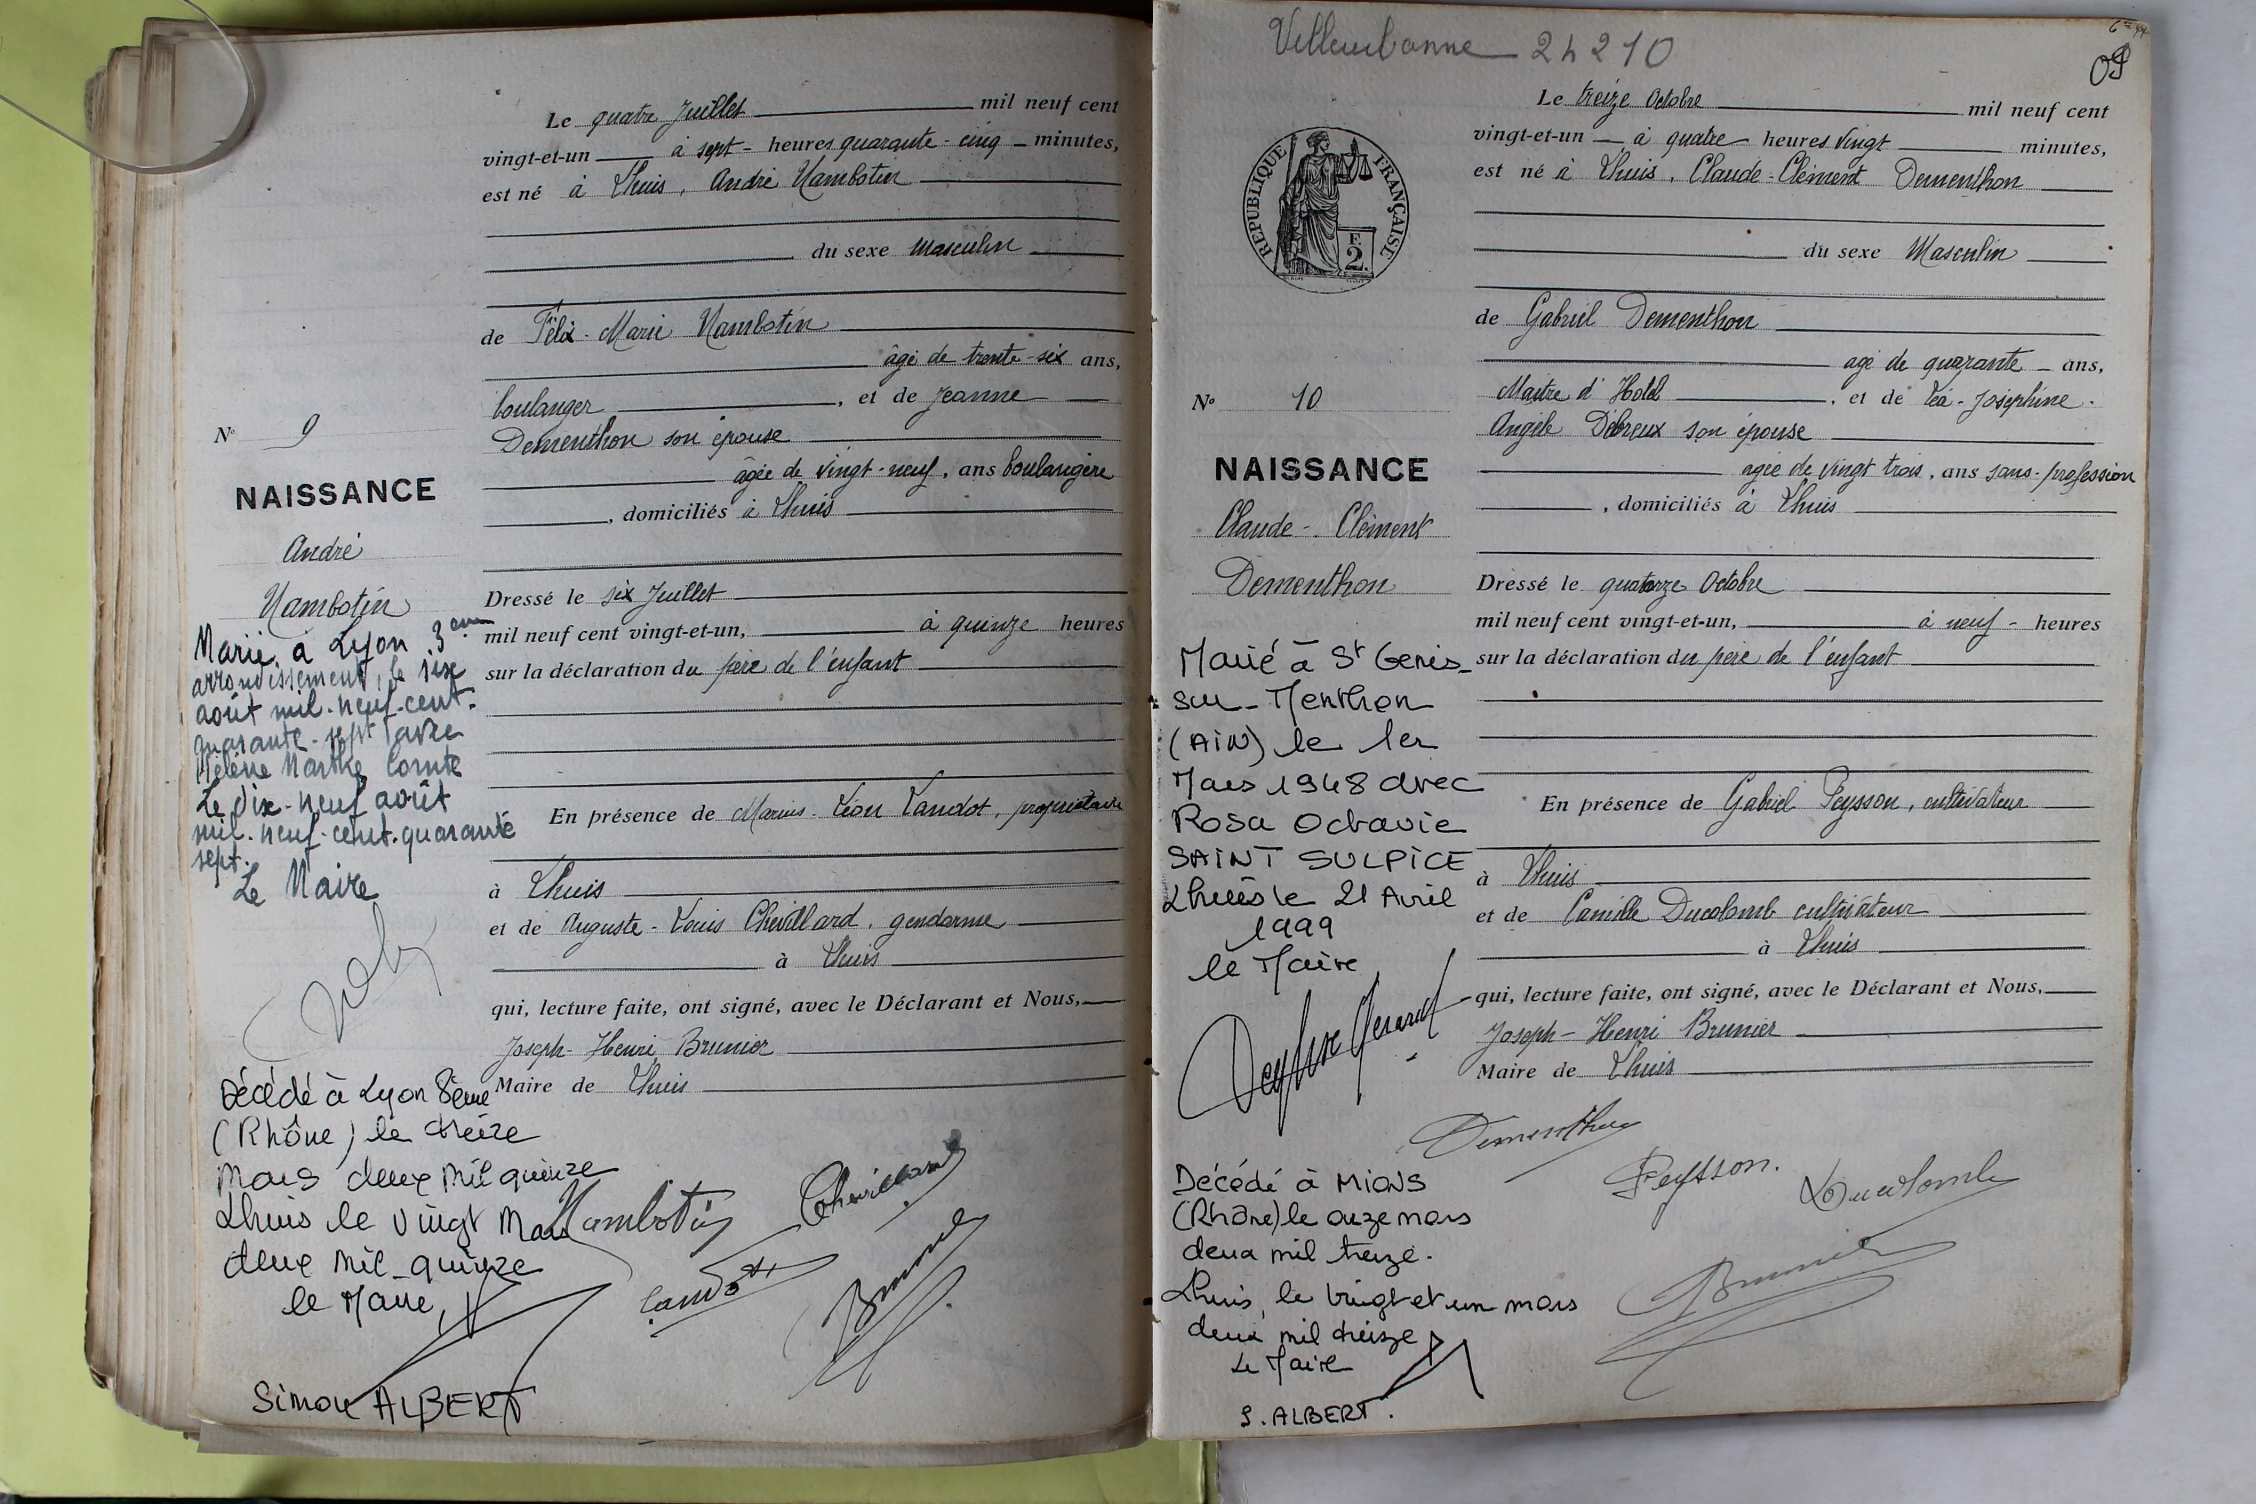 Le quatre Juillet mil neuf cent
vingt-et-un à sept - heures quarante - cinq - minutes,
est né à Lhuis, André Nambotin
du sexe masculin
de Félix - Marie Nambotin
âgé de trente-six ans,
boulanger, et de Jeanne
Dementhon son épouse
âgée de vingt-neuf, ans boulangère
, domiciliés à Lhuis
Dressé le six Juillet
mil neuf cent vingt-et-un, à quinze heures
sur la déclaration du père de l'enfant
En présence de Marius - Léon Landot, propriétaire
à Lhuis
et de Auguste - Louis Chevillard, gendarme
à Lhuis
qui, lecture faite, ont signé, avec le Déclarant et Nous,
Joseph - Henri Brunier
Maire de Lhuis
N° 9
NAISSANCE
André
Nambotin
Marié à Lyon 3eme
arrondissement, le six
août mil-neuf-cent-
quarante-sept avec
Hélène Marthe Comte
Le dix-neuf août
mil-neuf-cent-quarante
sept.
Le Maire
Décédé à Lyon 8ème
(Rhône) le treize
mars deux mil quinze
Lhuis le vingt Mars
deux mil-quinze
le Maire,
Simon ALBERT
Nambotin
Chevillard
Landot
Brunier
Villeurbanne 24210
09
Le treize Octobre mil neuf cent
vingt-et-un - à quatre - heures vingt minutes,
est né à Lhuis, Claude - Clément Dementhon
du sexe Masculin
de Gabriel Dementhon
agé de quarante - ans,
Maitre d'Hotel, et de Léa - Joséphine -
Angèle Debreux son épouse
agée de vingt trois, ans sans-profession
, domiciliés à Lhuis
Dressé le quatorze Octobre
mil neuf cent vingt-et-un, à neuf - heures
sur la déclaration du père de l'enfant
En présence de Gabriel Peysson, cultivateur
à Lhuis
et de Camille Ducolomb cultivateur
à Lhuis
qui, lecture faite, ont signé, avec le Déclarant et Nous,
Joseph - Henri Brunier
Maire de Lhuis
RÉPUBLIQUE FRANÇAISE
F.
2.
N° 10
NAISSANCE
Claude - Clément
Dementhon
Marié à St Genis-
sur-Menthon
(AIN) le 1er
Mars 1948 avec
Rosa Octavie
SAINT SULPICE
Lhuis le 21 Avril
1999
le Maire
Décédé à MIONS
(Rhône) le onze mars
deux mil treize.
Lhuis, le vingt et un mars
deux mil treize
Le Maire
S. ALBERT.
Dementhon
Peysson.
Ducolomb
Brunier